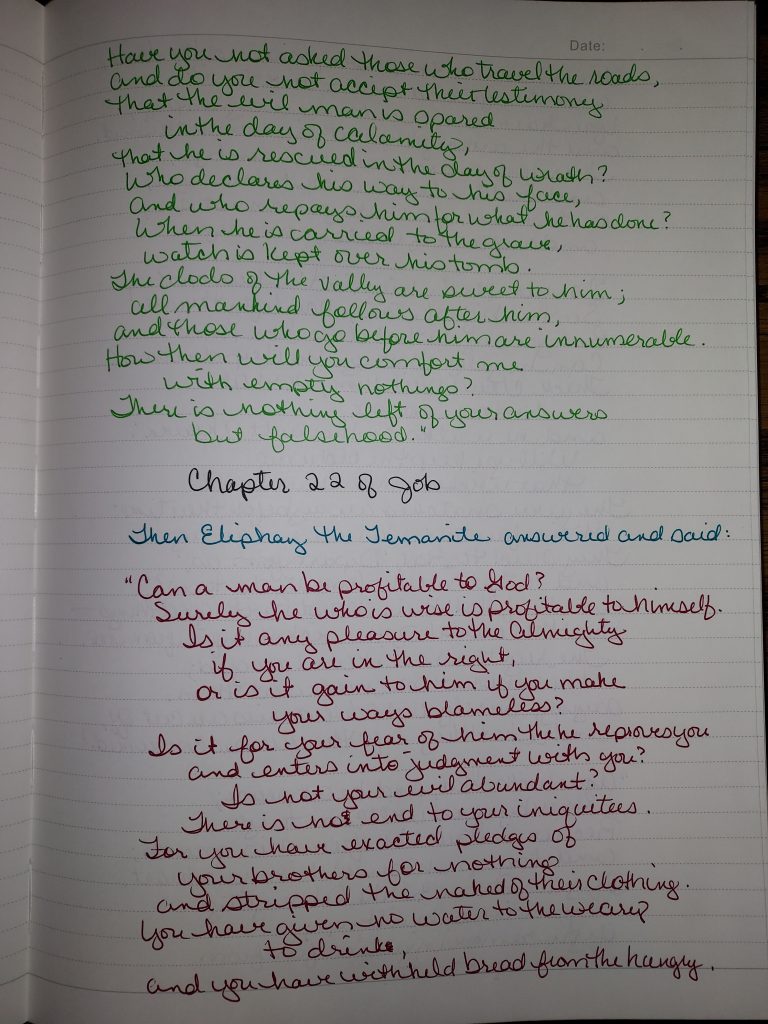 Date:
Have you not asked those who travel the roads,
and do you not accept their testimony
that the evil man is spared
in the day of calamity,
that he is rescued in the day of wrath?
Who declares his way to his face,
and who repays him for what he has done?
When he is carried to the grave,
watch is kept over his tomb.
The clods of the valley are sweet to him;
all mankind follows after him,
and those who go before him are innumerable.
How then will you comfort me
with empty nothings?
There is nothing left of your answers
but falsehood."
Chapter 22 of Job
Then Eliphaz the Temanite answered and said:
"Can a man be profitable to God?
Surely he who is wise is profitable to himself.
Is it any pleasure to the Almighty
if you are in the right,
or is it gain to him if you make
your ways blameless?
Is it for your fear of him the he reproves you
and enters into judgment with you?
Is not your evil abundant?
There is no end to your iniquitees.
For you have exacted pledges of
your brothers for nothing
and stripped the naked of their clothing.
You have given no water to the weary
to drink,
and you have withheld bread from the hungry.